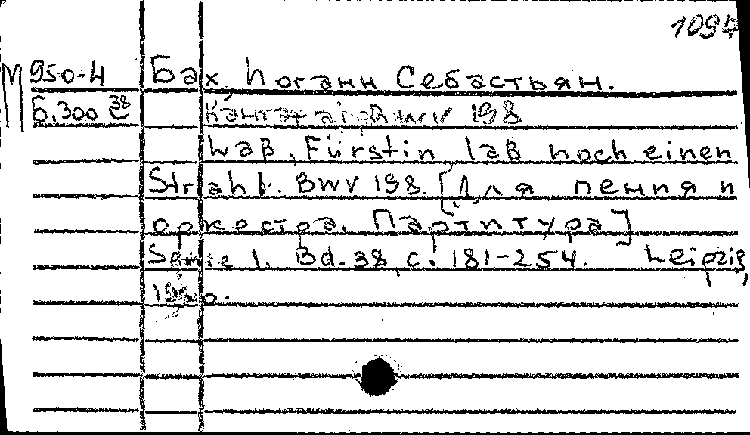 1094
М 950-4 Бах, Иоганн Себастьян.
Б.300 38 Кантата. BWV 198
Laß, Fürstin, laß noch einen
Strahl. BWV 198. [Для пения и
оркестра. Партитура]
Serie I. Bd. 38, с. 181-254. Leipzig,